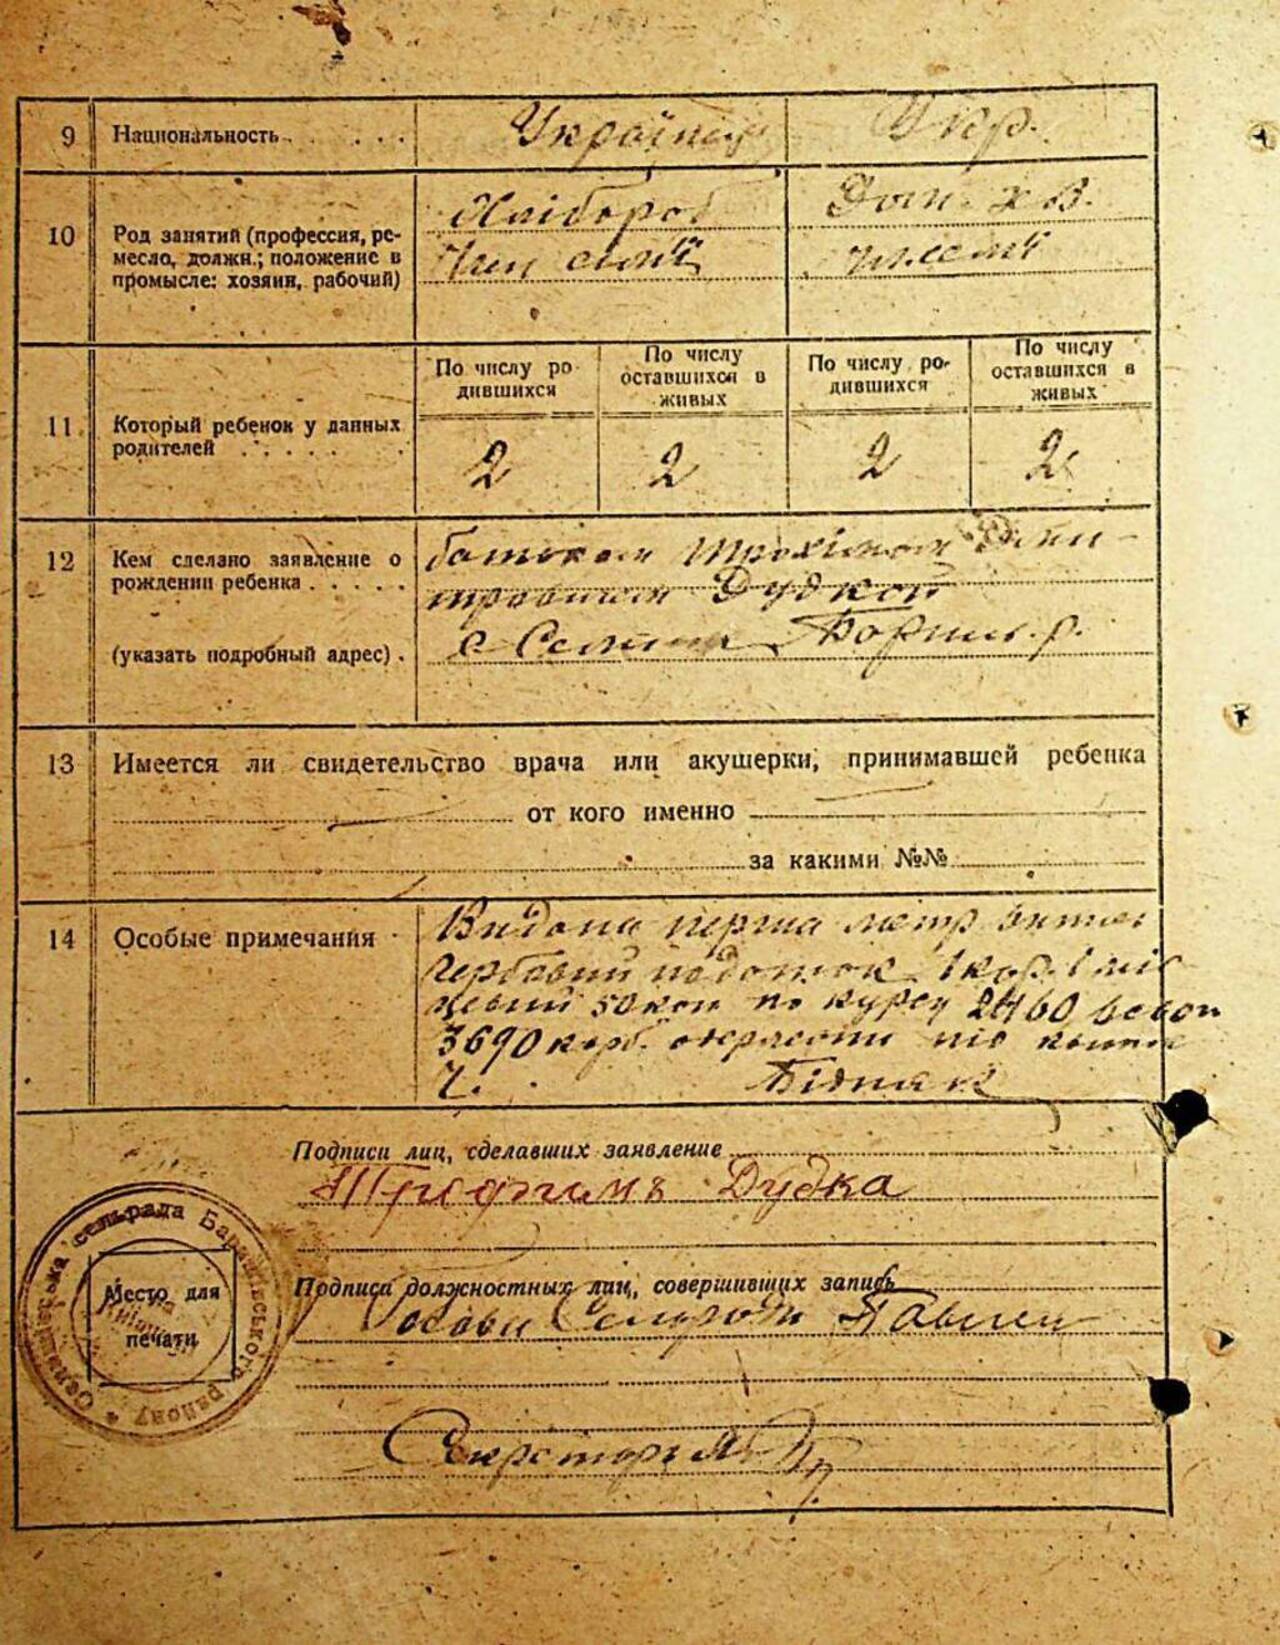 9 Национальность Українец Укр.
10 Род занятий (профессия, ре-
месло, должн.; положение в
промысле: хозяин, рабочий)
Хлібороб
Член сем'ї
Дом. хаз.
чл. сем'ї
11 Который ребенок у данных
родителей
По числу ро-
дившихся
По числу
оставшихся в
живых
По числу ро-
дившихся
По числу
оставшихся в
живых
2 2 2 2
12 Кем сделано заявление о
рождении ребенка
(указать подробный адрес).
батьком Трохимом Дми-
тровичем Дудкой
с р.
13 Имеется ли свидетельство врача или акушерки, принимавшей ребенка
от кого именно
за какими №№
14 Особые примечания
Видана перша метр
Гербовий податок 1 кар. 1 міс
цевий 50 коп по курсу
3690 карб. під
Ч. Бідняк
Подписи лиц, сделавших заявление
Трофимъ Дудка
Подписи должностных лиц, совершивших запись
Голова Сельради
Секретарь
Место для
печати
сельрада Барашівського району